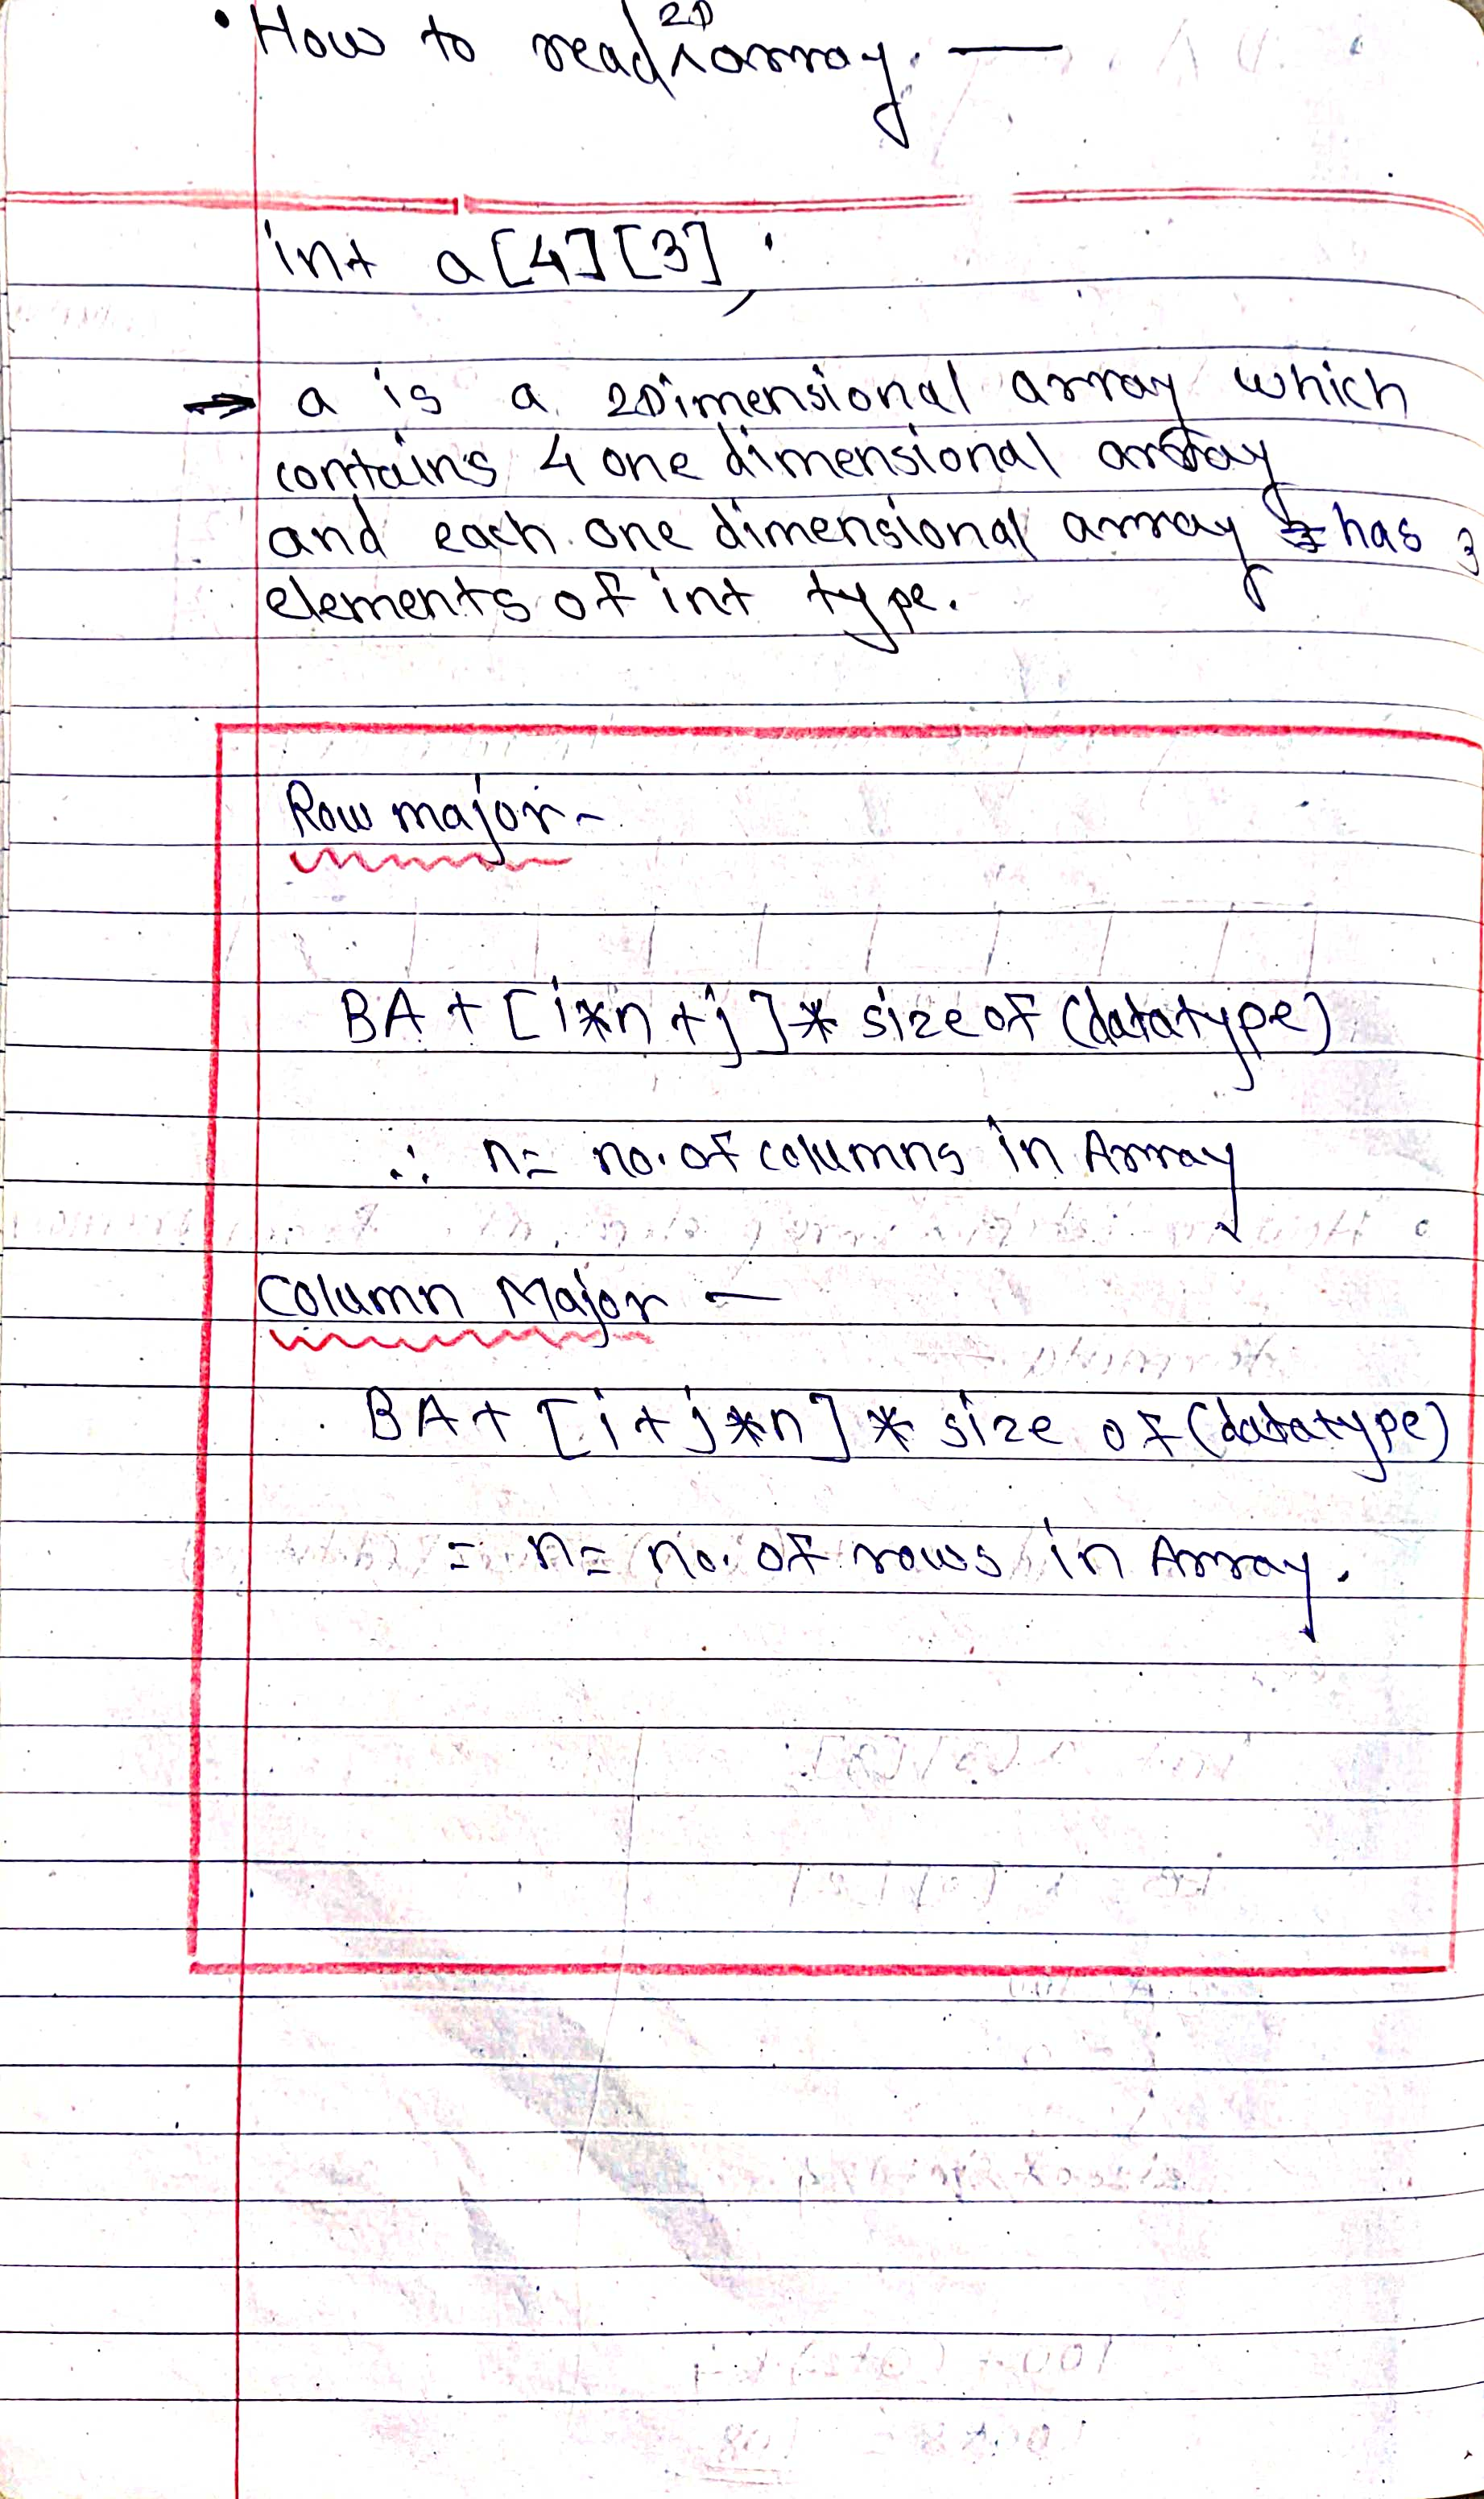 • How to read 2D array. —
int a[4][3];
→ a is a 2Dimensional array which
contains 4 one dimensional array
and each one dimensional array has 3
elements of int type.
Row major -
BA + [i*n+j] * size of (datatype)
∴ n = no. of columns in Array
Column Major —
BA + [i+j*n] * size of (datatype)
= n = no. of rows in Array.